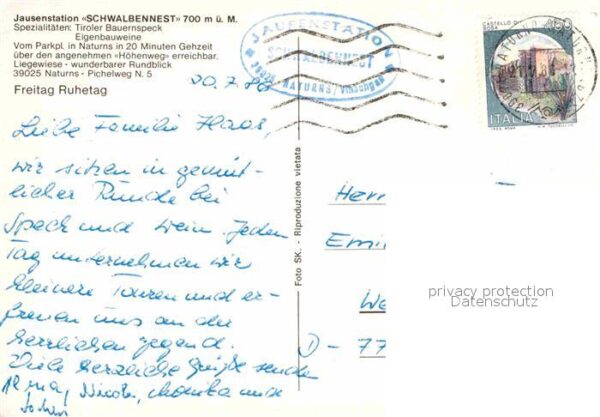 Jausenstation «SCHWALBENNEST» 700 m ü. M.
Spezialitäten: Tiroler Bauernspeck
Eigenbauweine
Vom Parkpl. in Naturns in 20 Minuten Gehzeit
über den angenehmen «Höhenweg» erreichbar.
Liegewiese - wunderbarer Rundblick
39025 Naturns - Pichelweg N. 5
Freitag Ruhetag
JAUSENSTATION
SCHWALBENNEST
39025 NATURNS / Vinschgau
CASTELLO DI
ITALIA
20.7.86
Liebe Familie Haas,
wir sitzen in gemüt-
licher Runde bei
Speck und Wein. Jeden
Tag unternehmen wir
kleinere Touren und er-
freuen uns an der
herrlichen Gegend.
Viele herzliche Grüße senden
Nicole, Monika und
Foto SK. - Riproduzione vietata
Herr
Emil
We
D - 77
privacy protection
Datenschutz